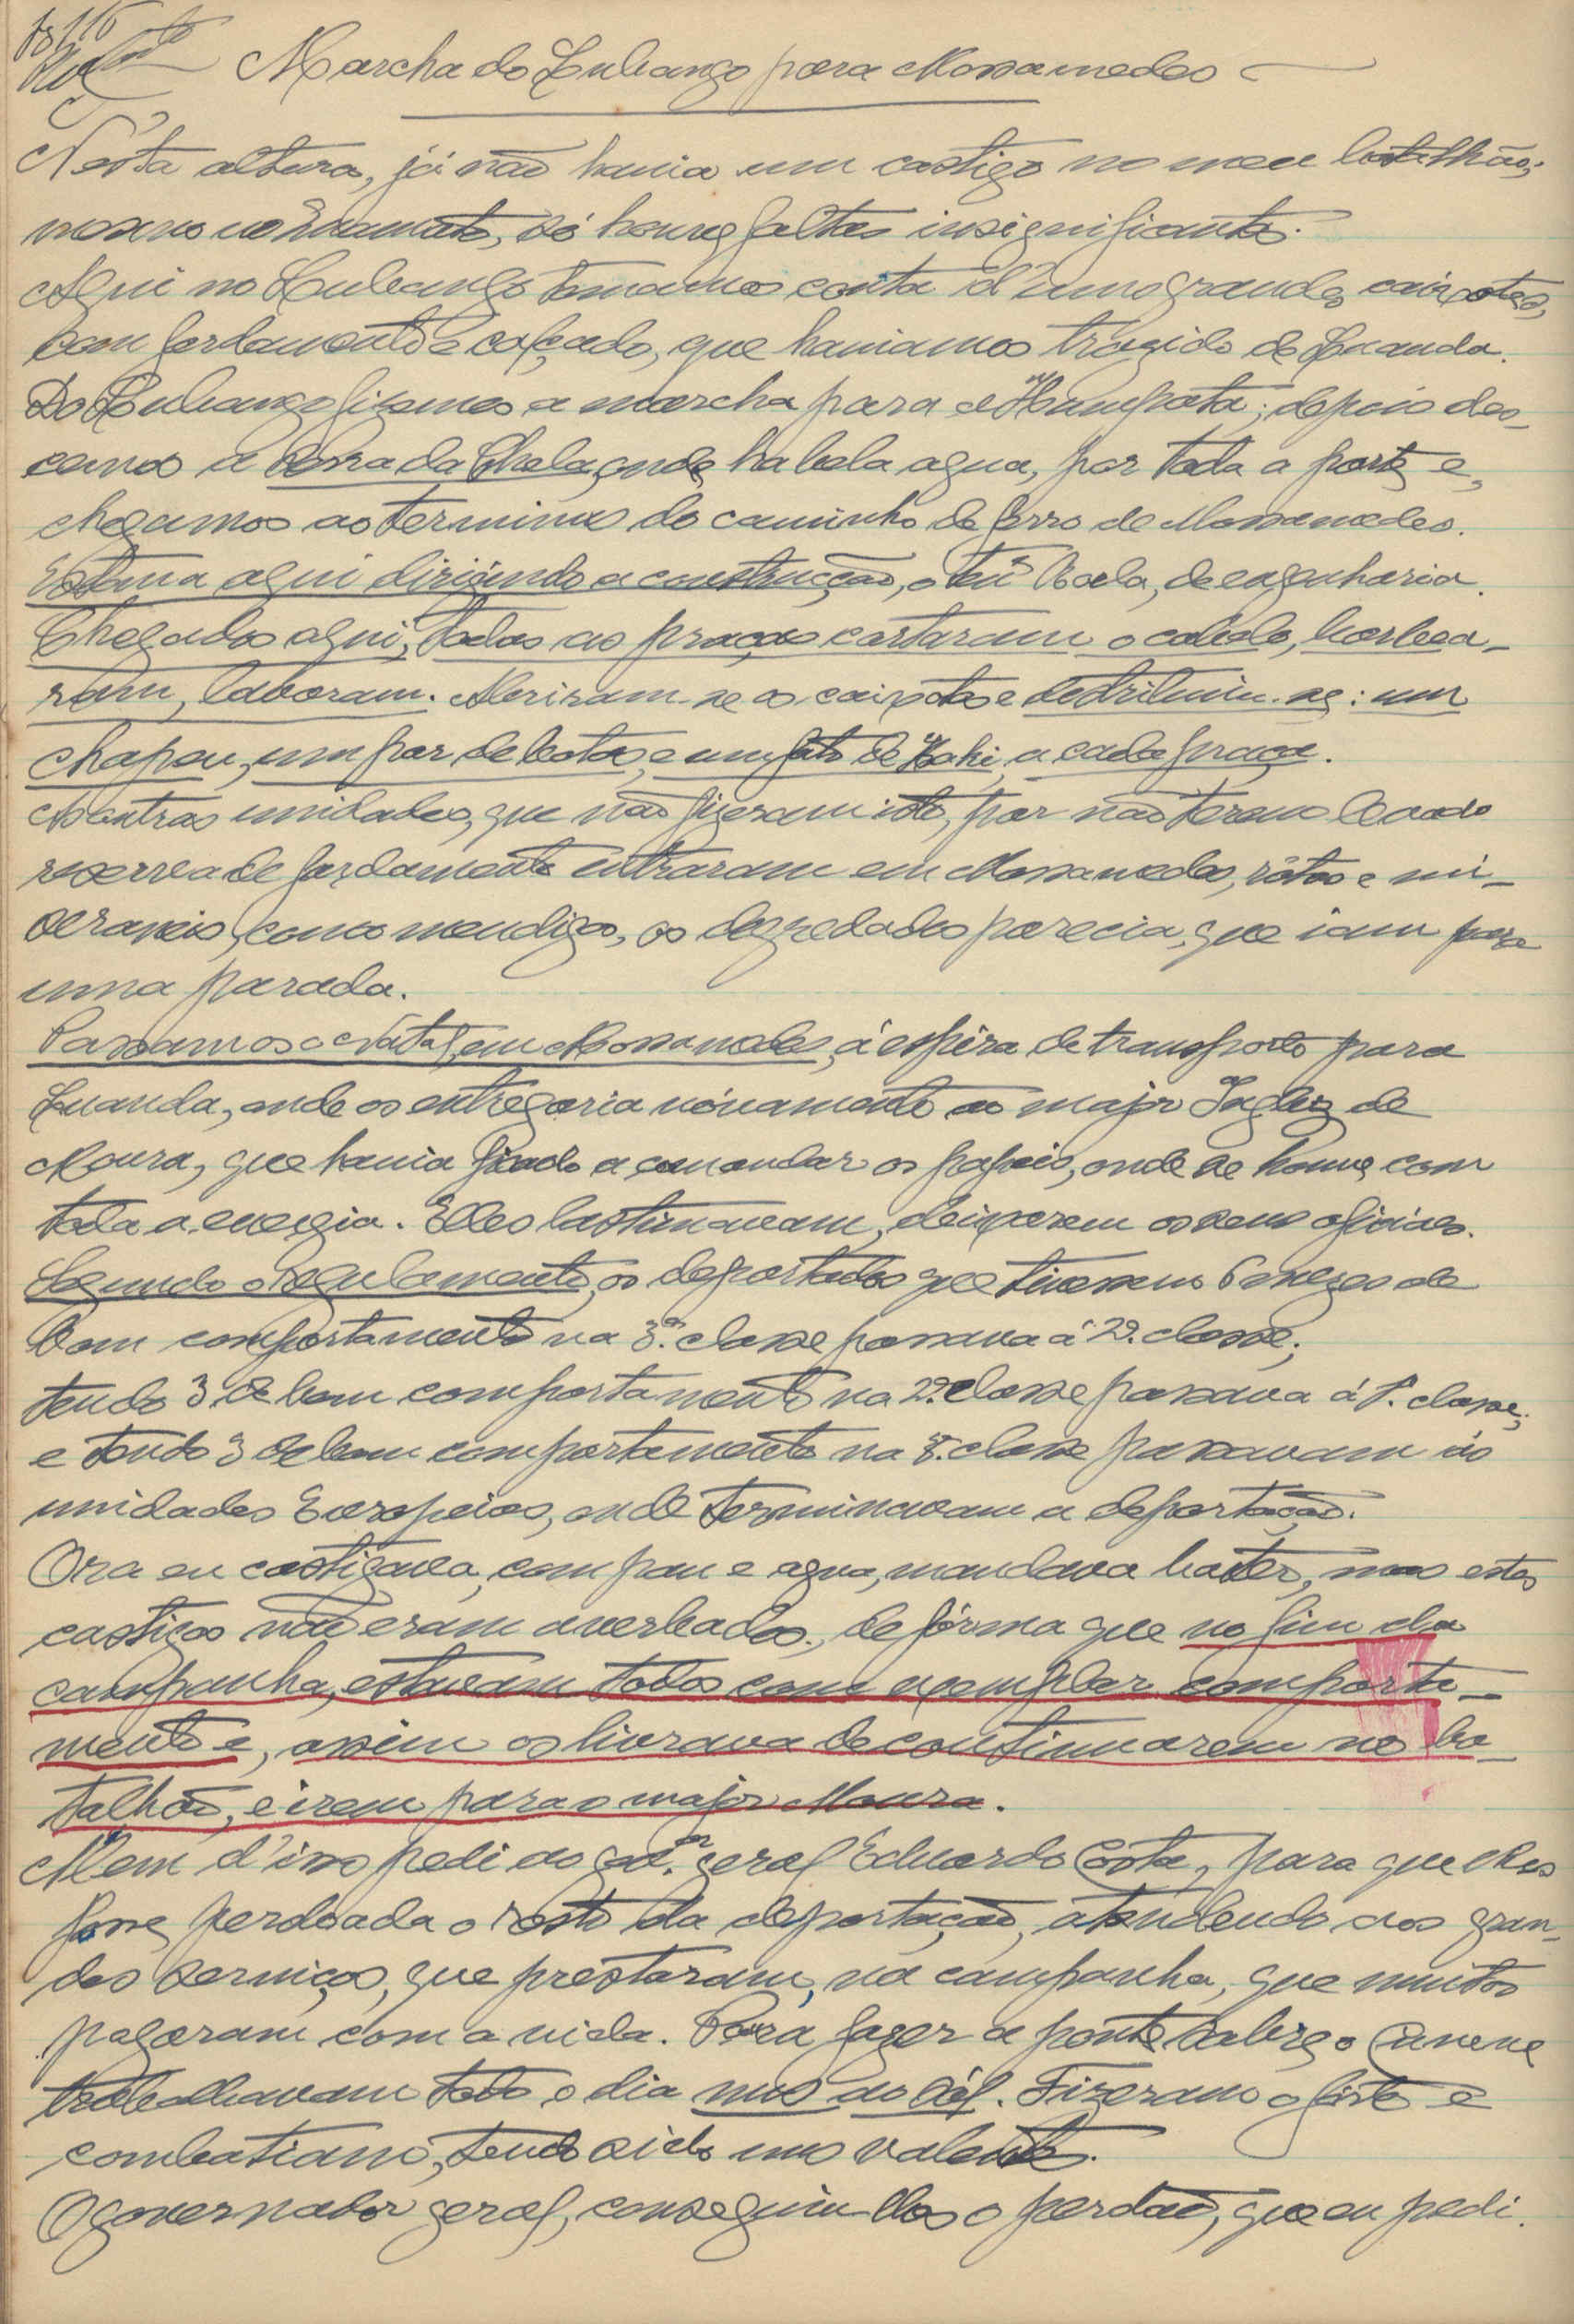 Marcha do Lubango para Mossamedes
Nesta altura, já não havia um castigo no meu batalhão;
só houve faltas insignificantes.
Aqui no Lubango tomamos conta d'uns grandes caixotes,
com fardamento e calçado, que haviamos trazido de Luanda.
Do Lubango fizemos a marcha para a Humpata; depois des-
cemos a Serra da Chela, onde ha bela agua, por toda a parte e,
chegamos ao terminus do caminho de ferro de Mossamedes.
Estava aqui dirigindo a construcção, o ten.te de engenharia.
Chegados aqui, todas as praças cortaram o cabelo, barbea-
ram, lavaram. Abriram-se os caixotes e distribuiu-se: um
chapeu, um par de botas, e um fato de Kaki, a cada praça.
As outras unidades, que não fizeram isto, por não terem levado
reserva de fardamento entraram em Mossamedes, rôtos e mi-
seraveis, como mendigos, os degredados parecia, que iam para
uma parada.
Passamos o Natal em Mossamedes, á espera de transporte para
Luanda, onde os entregaria nóvamente ao major Inglez de
Moura, que havia ficado a comandar os papeis, onde se houve com
toda a energia. Elles lastimavam, deixarem os seus oficiaes.
Segundo o Regulamento, os deportados que tivessem 6 mezes de
bom comportamento na 3.ª classe passava á 2.ª classe;
tendo 3 de bom comportamento na 2.ª classe passava á 1.ª classe;
e tendo 3 de bom comportamento na 1.ª classe passavam ás
unidades Europeias, onde terminavam a deportação.
Ora eu castigava, com pau e agua, mandava bater, mas estes
castigos não eram averbados, de fórma que no fim da
campanha, estavam todos com exemplar comporta-
mento e, assim os livrava de continuarem no ba-
talhão, e irem para o major Moura.
Alem d'isso pedi ao gov.or geral Eduardo Costa, para que lhes
fosse perdoada o resto da deportação, atendendo aos gran-
des serviços, que prestaram, na campanha, que muitos
pagaram com a vida. Para fazer a ponte sobre o Cunene
trabalhavam todo o dia nus ao sól. Fizeram o forte e
combatiam, tendo sido uns valentes.
O governador geral, conseguiu-lhes o perdão, que eu pedi.